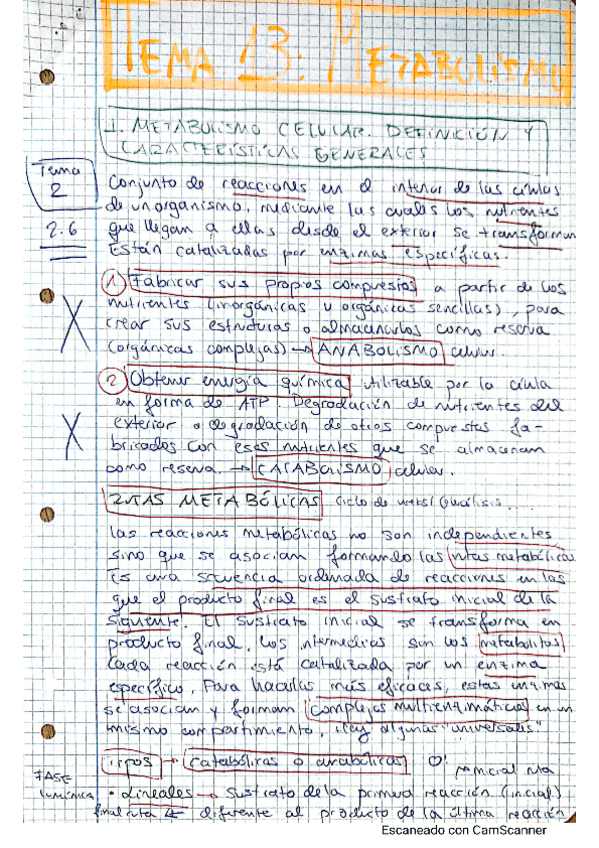 TEMA 13: METABOLISMO
1. METABOLISMO CELULAR. DEFINICIÓN Y
CARACTERÍSTICAS GENERALES
Tema
2
2.6
Conjunto de reacciones en el interior de las células
de un organismo, mediante las cuales los nutrientes
que llegan a ellas desde el exterior se transforman
Están catalizadas por enzimas específicas.
1) Fabricar sus propios compuestos a partir de los
nutrientes (inorgánicas u orgánicas sencillas), para
crear sus estructuras o almacenarlos como reserva
(orgánicas complejas) → ANABOLISMO celular.
2 Obtener energía química utilizable por la célula
en forma de ATP. Degradación de nutrientes del
exterior o degradación de otros compuestos fa-
bricados con esos nutrientes que se almacenan
como reserva. → CATABOLISMO celular.
RUTAS METABÓLICAS ciclo de
las reacciones metabólicas no son independientes
sino que se asocian formando las rutas metabólicas
Es una secuencia ordenada de reacciones en las
que el producto final es el sustrato inicial de la
siguiente. El sustrato inicial se transforma en
producto final, los intermedios son los metabolitos
Cada reacción está catalizada por un enzima
específico. Para hacerlas más eficaces, estas enzimas
se asocian y forman complejos multienzimáticos en un
mismo compartimento. Hay algunas "universales"
tipos → catabólicas o anabólicas
FASE
lumínica
• Lineales → sustrato de la primera reacción (inicial)
final ruta ≠ diferente al producto de la última reacción
Escaneado con CamScanner